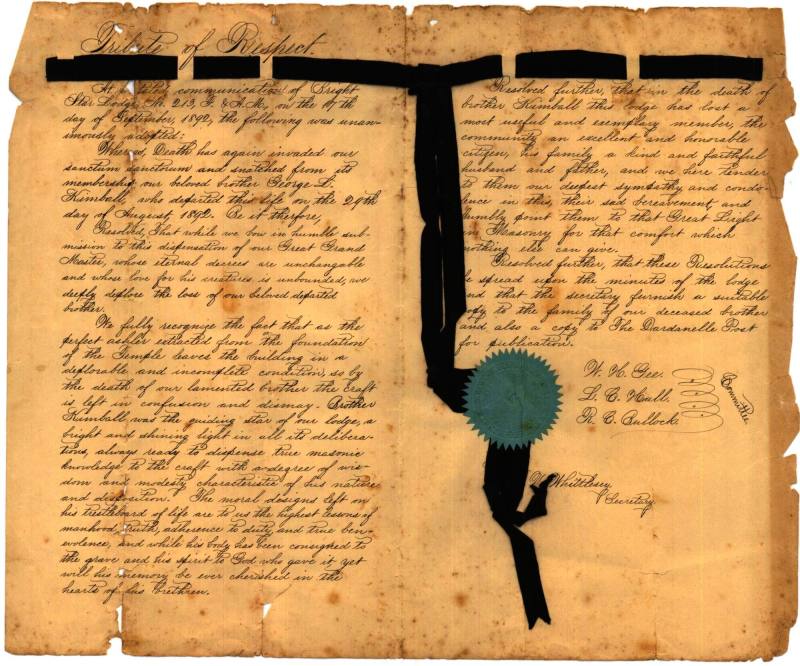 Tribute of Respect.
At a stated communication of Bright
Star Lodge, No. 213, F. & A.M., on the
day of September, 1892, the following was unan-
imously adopted:
Whereas, Death has again invaded our
sanctum sanctorum and snatched from its
membership our beloved brother George L.
Kimball, who departed this life on the 29th
day of August, 1892. Be it therfore,
Resolved, That while we bow in humble sub-
mission to this dispensation of our Great Grand
Master, whose eternal decrees are unchangable
and whose love for his creatures is unbounded, we
deeply deplore the loss of our beloved departed
brother.
We fully recognize the fact that as the
perfect ashler extracted from the foundation
of the Temple leaves the building in a
deplorable and incomplete condition, so by
the death of our lamented brother the craft
is left in confusion and dismay. Brother
Kimball was the guiding star of our lodge, a
bright and shining light in all its delibera-
tions, always ready to dispense true masonic
knowledge to the craft with a degree of wis-
dom and modesty characteristic of his nature
and disposition. The moral designs left on
his trestleboard of life are to us the highest lessons of
manhood, truth, adherence to duty and true ben-
evolence, and while his body has been consigned to
the grave and his spirit to God who gave it yet
will his memory be ever cherished in the
hearts of his brethren.
Resolved further, that in the death of
brother Kimball this lodge has lost a
most useful and exemplary member, the
community an excellent and honorable
citizen, his family a kind and faithful
husband and father, and we here tender
to them our deepest sympathy and condo-
lence in this, their sad bereavement, and
humbly point them to that Great Light
Masonry for that comfort which
nothing else can give.
Resolved further, that these Resolutions
be spread upon the minutes of the lodge
and that the secretary furnish a suitable
copy to the family of our deceased brother
and also a copy to The Dardanelle Post
for publication.
W. H. Gee.
L. C. Hull.
R. C. Bullock.
Committee
Whittlesey
Secretary